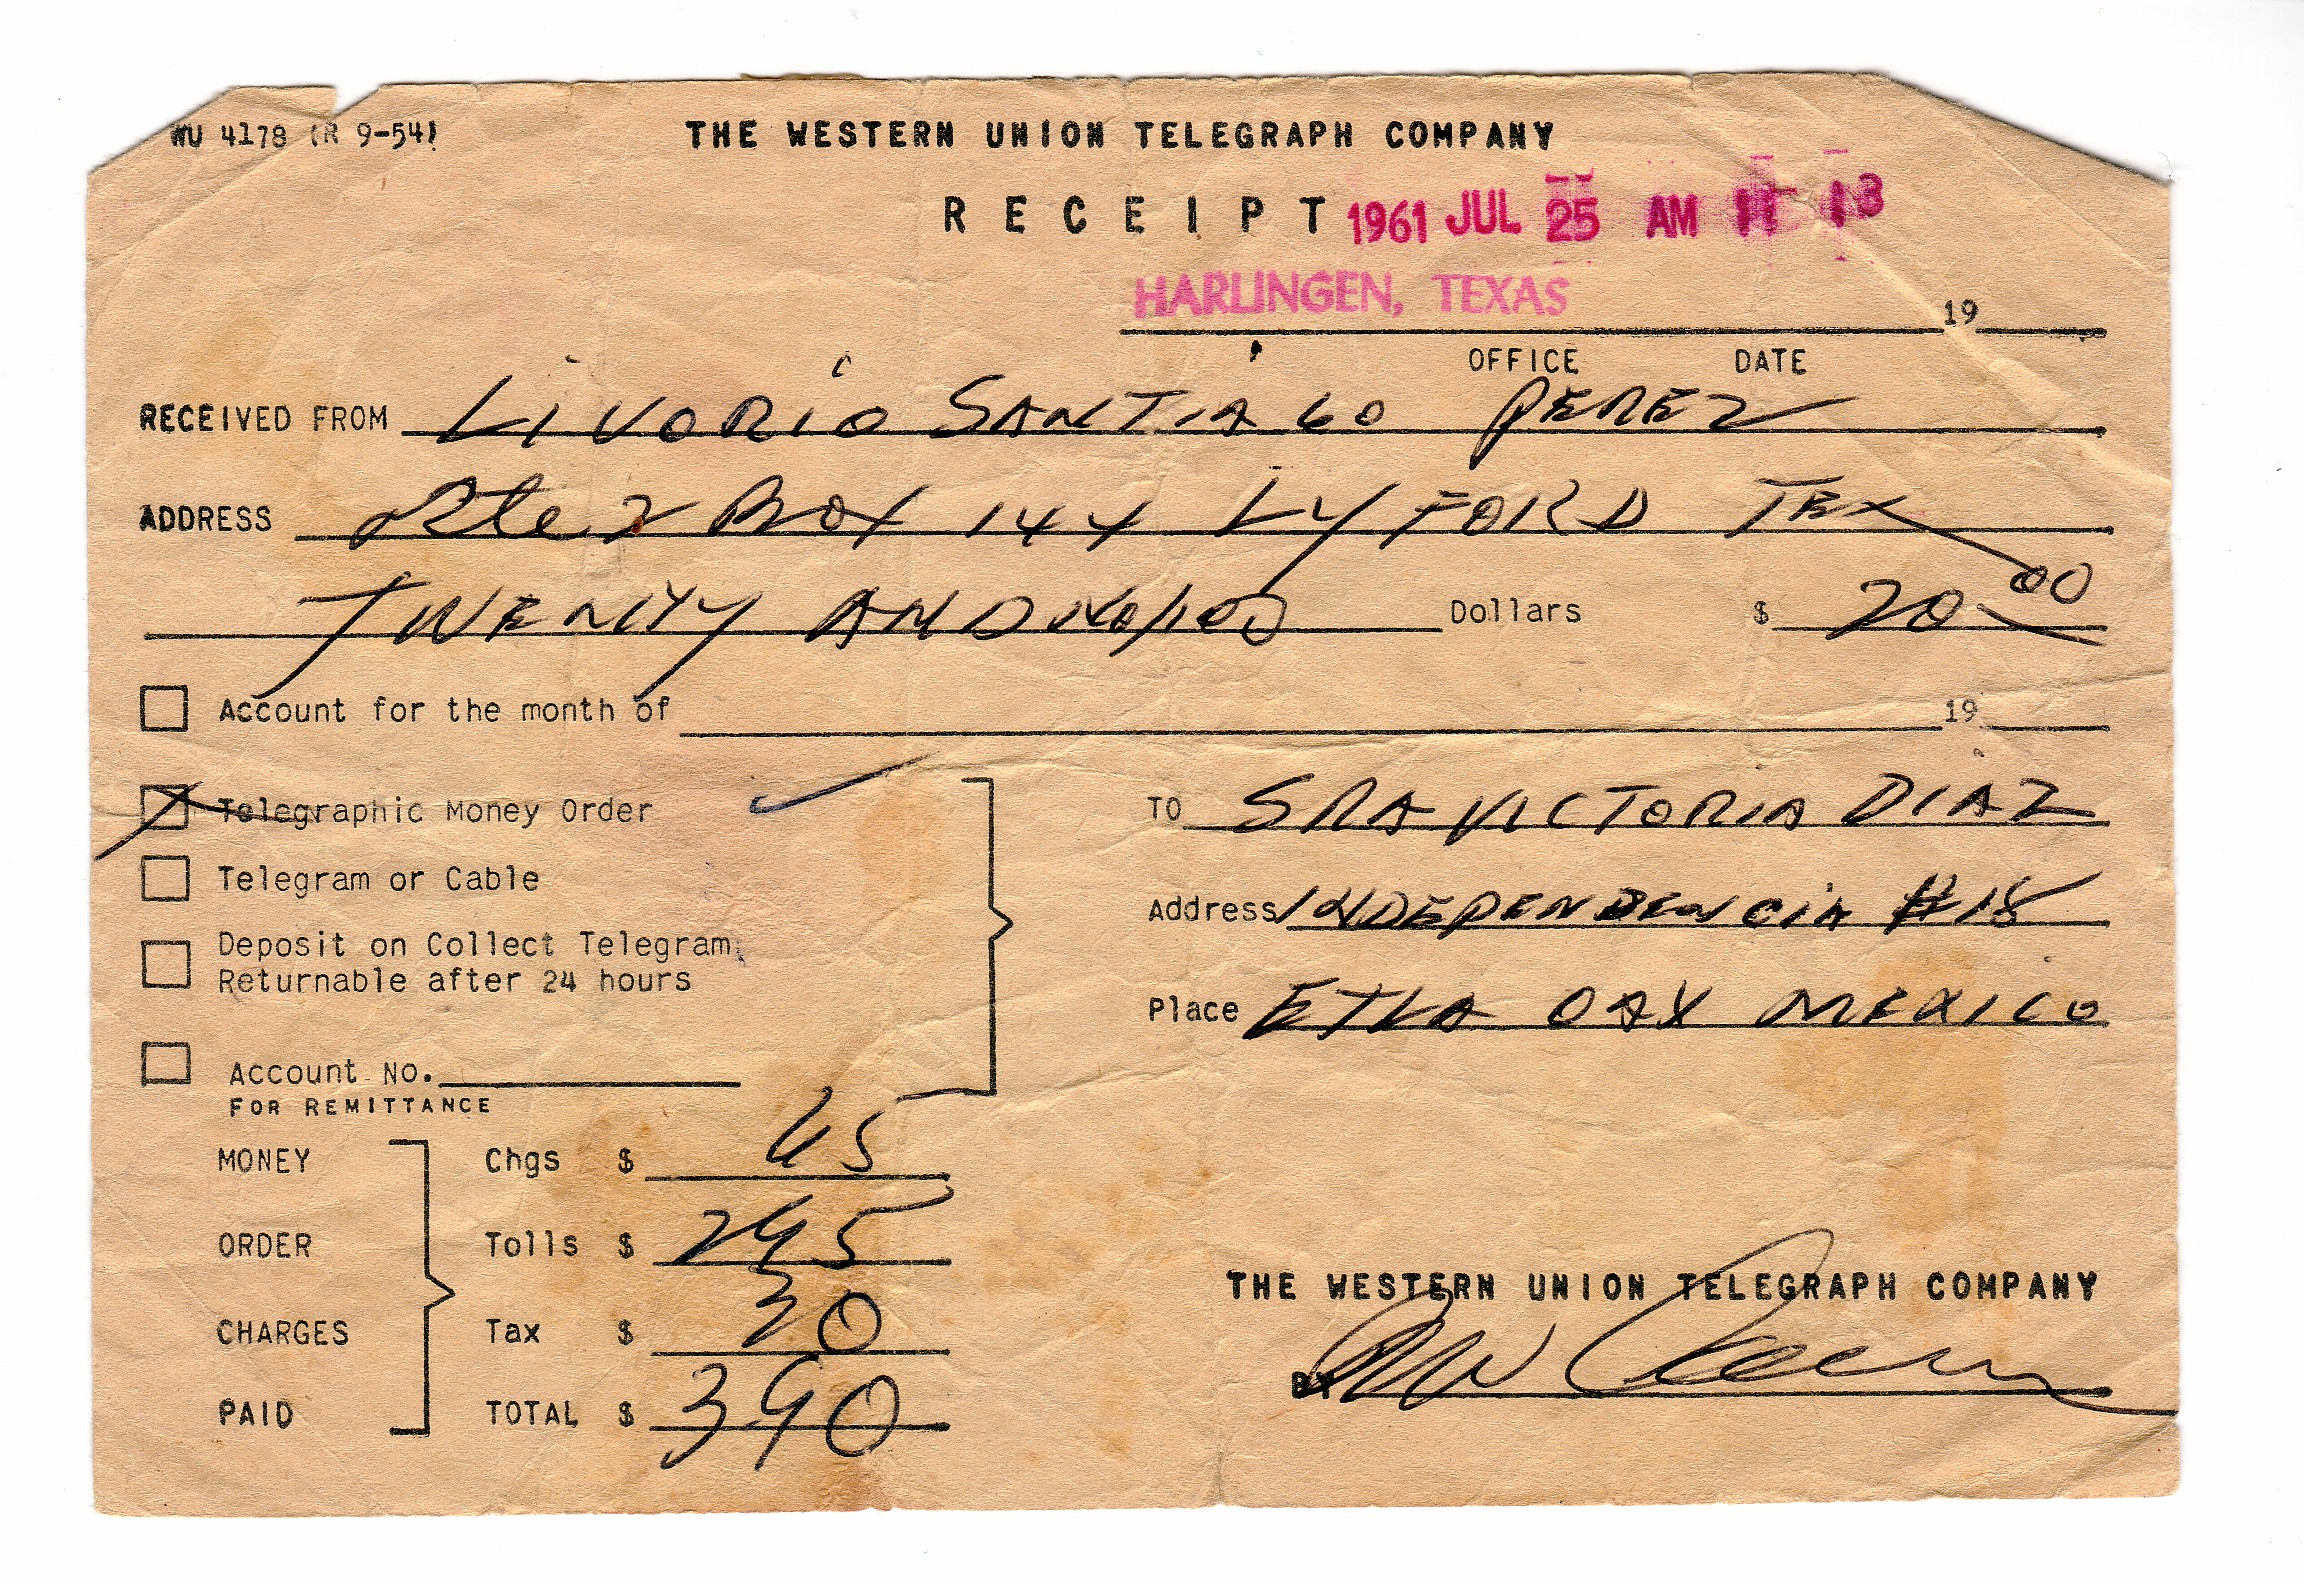 WU 4178 (R 9-54)
THE WESTERN UNION TELEGRAPH COMPANY
RECEIPT 1961 JUL 25 AM 11 13
HARLINGEN, TEXAS 19
OFFICE DATE
RECEIVED FROM LIVORIO SANTIAGO PEREZ
ADDRESS Rte 2 Box 144 LYFORD TEX
TWENTY AND No/100 Dollars $ 20.00
Account for the month of 19
Telegraphic Money Order
TO SRA VICTORIA DIAZ
Telegram or Cable
Address INDEPENDENCIA #18
Deposit on Collect Telegram
Returnable after 24 hours
Place ETLA OAX MEXICO
Account No.
FOR REMITTANCE
MONEY Chgs $ 65
ORDER Tolls $ 295
THE WESTERN UNION TELEGRAPH COMPANY
CHARGES Tax $ 30
BY
PAID TOTAL $ 390